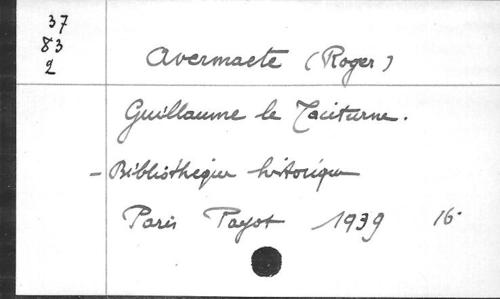 37
83
2
Avermaete (Roger)
Guillaume le Taciturne.
- Bibliothèque historique
Paris Payot 1939 16°